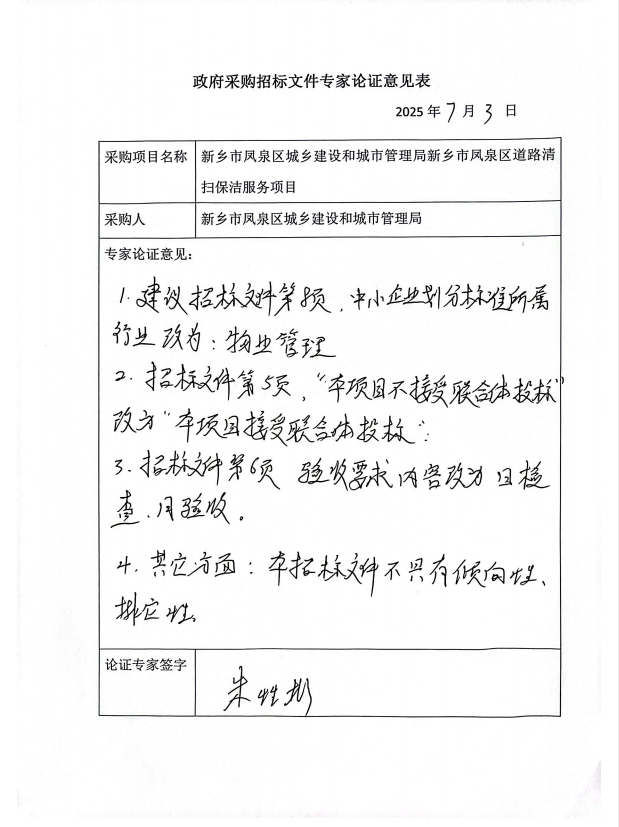 政府采购招标文件专家论证意见表
2025 年 7 月 3 日
采购项目名称
新乡市凤泉区城乡建设和城市管理局新乡市凤泉区道路清
扫保洁服务项目
采购人
新乡市凤泉区城乡建设和城市管理局
专家论证意见：
1. 建议招标文件第 页，中小企业划分标准所属
行业 改为：物业管理
2. 招标文件第5页，“本项目不接受联合体投标”
改为“本项目接受联合体投标”；
3. 招标文件第6页 验收要求内容改为 日检
查、月验收。
4. 其它方面：本招标文件不具有倾向性、
排它性。
论证专家签字
朱